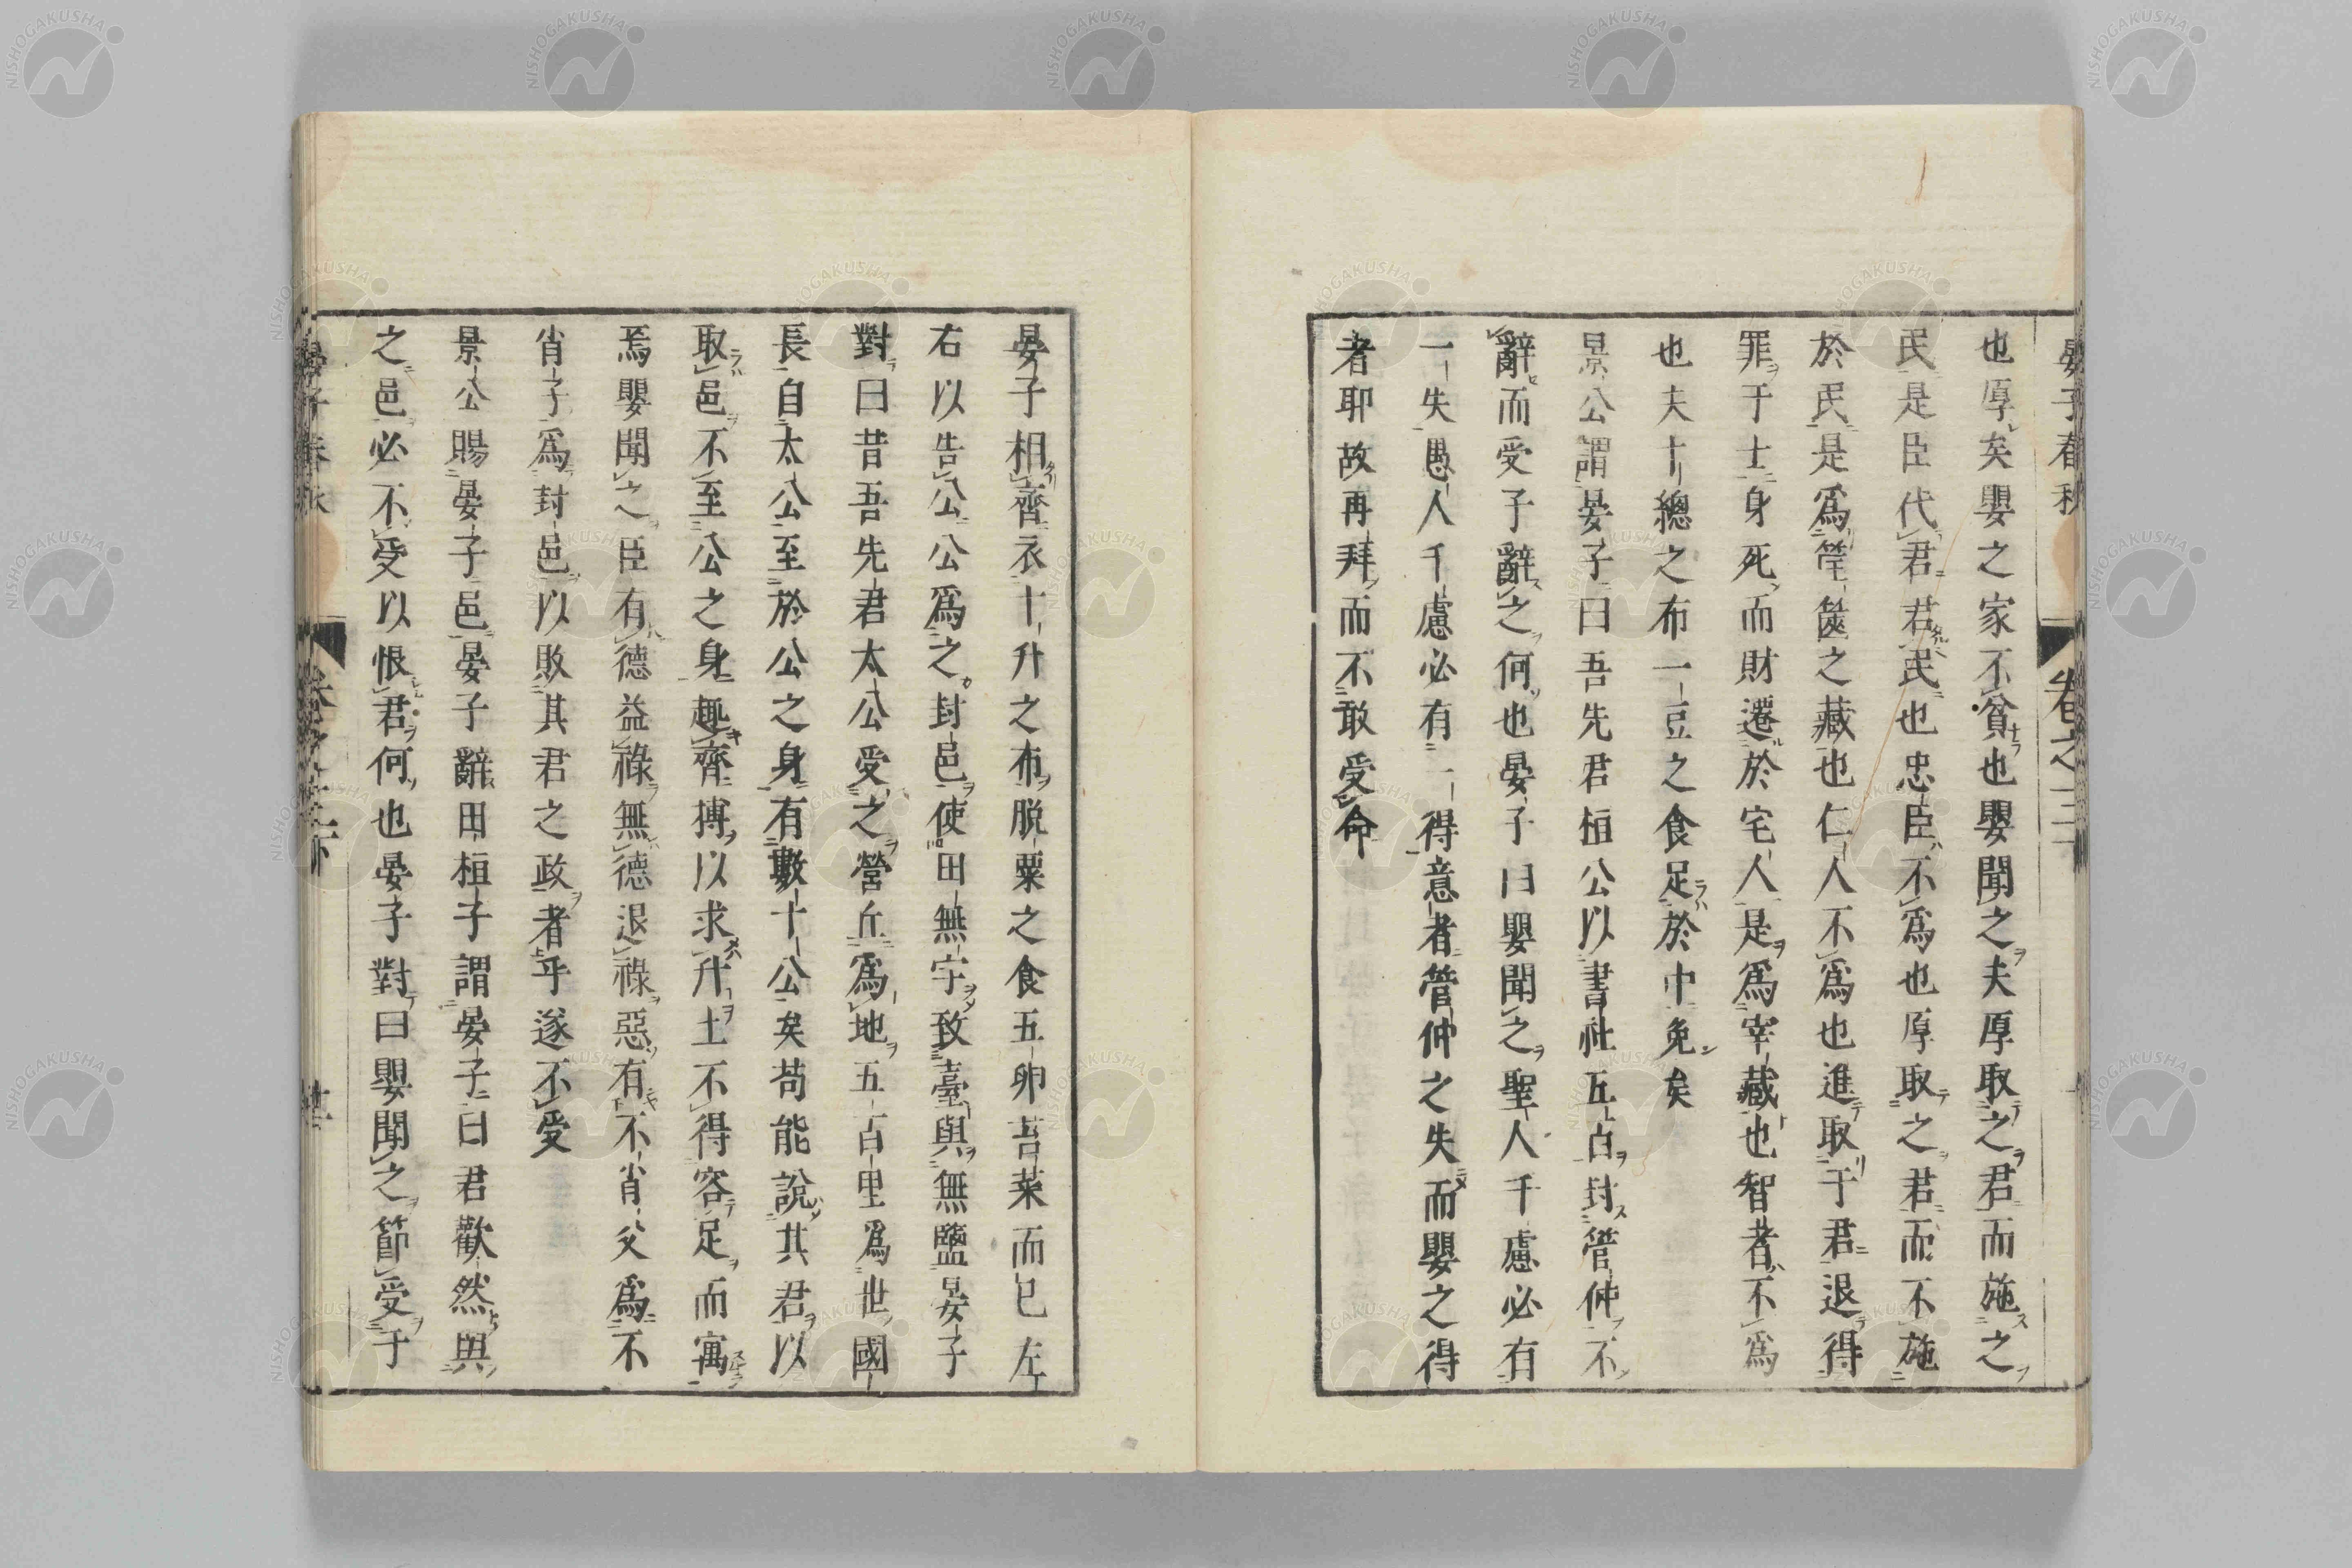 晏子春秋 卷之三
也厚矣嬰之家不貧也嬰聞之夫厚取之君而施之
民是臣代君君民也忠臣不爲也厚取之君而不施
於民是爲筐篋之藏也仁人不爲也進取于君退得
罪于士身死而財遷於宅人是爲宰藏也智者不爲
也夫十總之布一豆之食足於中免矣
景公謂晏子曰吾先君桓公以書社五百封管仲不
辭而受子辭之何也晏子曰嬰聞之聖人千慮必有
一失愚人千慮必有一得意者管仲之失而嬰之得
者耶故再拜而不敢受命
晏子相齊衣十升之布脫粟之食五卵苔菜而已左
右以告公公爲之封邑使田無宇致臺與無鹽晏子
對曰昔吾先君太公受之營丘爲地五百里爲世國
長自太公至於公之身有數十公矣苟能說其君以
取邑不至公之身趣齊搏以求升土不得容足而寓
焉嬰聞之臣有德益祿無德退祿惡有不肖父爲不
肖子爲封邑以敗其君之政者乎遂不受
景公賜晏子邑晏子辭田桓子謂晏子曰君歡然與
之邑必不受以恨君何也晏子對曰嬰聞之節受于
晏子春秋
NISHOGAKUSHA